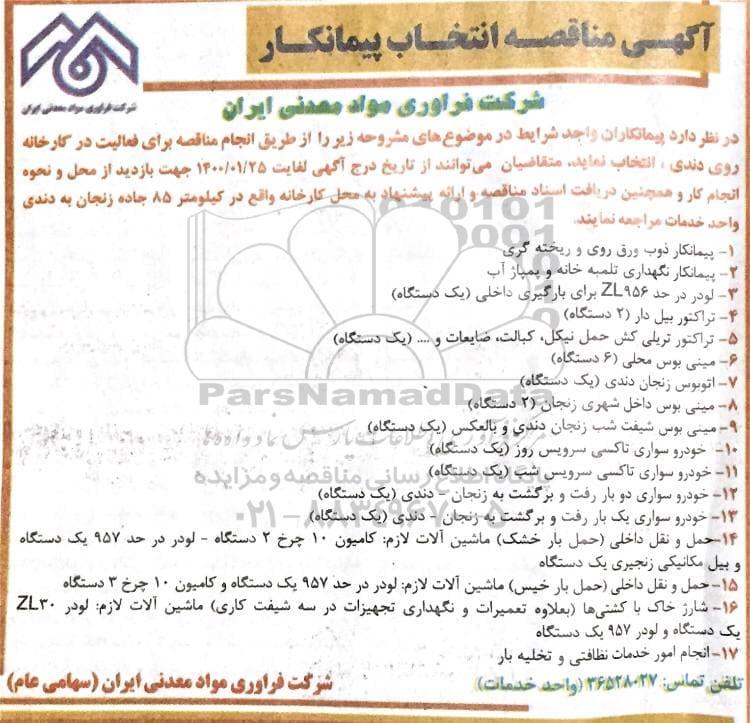 آگهی مناقصه انتخاب پیمانکار
شرکت فراوری مواد معدنی ایران
شرکت فراوری مواد معدنی ایران
در نظر دارد پیمانکاران واجد شرایط در موضوع‌های مشروحه زیر را از طریق انجام مناقصه برای فعالیت در کارخانه
روی دندی ، انتخاب نماید. متقاضیان می‌توانند از تاریخ درج آگهی لغایت ۱۴۰۰/۰۱/۲۵ جهت بازدید از محل و نحوه
انجام کار و همچنین دریافت اسناد مناقصه و ارائه پیشنهاد به محل کارخانه واقع در کیلومتر ۸۵ جاده زنجان به دندی
واحد خدمات مراجعه نمایند.
۱- پیمانکار ذوب ورق روی و ریخته گری
۲- پیمانکار نگهداری تلمبه خانه و پمپاژ آب
۳- لودر در حد ZL۹۵۶ برای بارگیری داخلی (یک دستگاه)
۴- تراکتور بیل دار (۲ دستگاه)
۵- تراکتور تریلی کش حمل نیکل، کبالت، ضایعات و .... (یک دستگاه)
۶- مینی بوس محلی (۶ دستگاه)
۷- اتوبوس زنجان دندی (یک دستگاه)
۸- مینی بوس داخل شهری زنجان (۲ دستگاه)
۹- مینی بوس شیفت شب زنجان دندی و بالعکس (یک دستگاه)
۱۰- خودرو سواری تاکسی سرویس روز (یک دستگاه)
۱۱- خودرو سواری تاکسی سرویس شب (یک دستگاه)
۱۲- خودرو سواری دو بار رفت و برگشت به زنجان - دندی (یک دستگاه)
۱۳- خودرو سواری یک بار رفت و برگشت به زنجان - دندی (یک دستگاه)
۱۴- حمل و نقل داخلی (حمل بار خشک) ماشین آلات لازم: کامیون ۱۰ چرخ ۲ دستگاه - لودر در حد ۹۵۷ یک دستگاه
و بیل مکانیکی زنجیری یک دستگاه
۱۵- حمل و نقل داخلی (حمل بار خیس) ماشین آلات لازم: لودر در حد ۹۵۷ یک دستگاه و کامیون ۱۰ چرخ ۳ دستگاه
۱۶- شارژ خاک با کشتی‌ها (بعلاوه تعمیرات و نگهداری تجهیزات در سه شیفت کاری) ماشین آلات لازم: لودر ZL۳۰
یک دستگاه و لودر ۹۵۷ یک دستگاه
۱۷- انجام امور خدمات نظافتی و تخلیه بار
تلفن تماس: ۳۶۵۲۸۰۲۷ (واحد خدمات)
شرکت فراوری مواد معدنی ایران (سهامی عام)
ParsNamadData
پایگاه اطلاع رسانی مناقصه و مزایده
۰۲۱-۸۸۳۴۹۶۷۰-۵